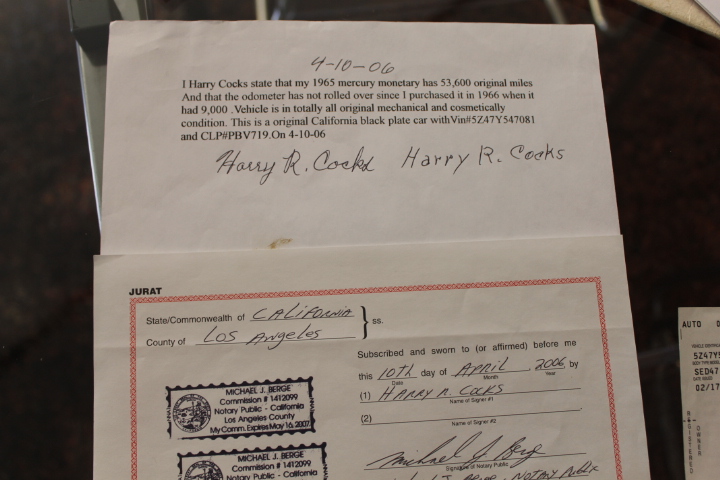 4-10-06
I Harry Cocks state that my 1965 mercury monetary has 53,600 original miles
And that the odometer has not rolled over since I purchased it in 1966 when it
had 9,000 .Vehicle is in totally all original mechanical and cosmetically
condition. This is a original California black plate car withVin#5Z47Y547081
and CLP#PBV719.On 4-10-06
Harry R. Cocks Harry R. Cocks
JURAT
State/Commonwealth of CALIFORNIA
County of Los Angeles
ss.
Subscribed and sworn to (or affirmed) before me
this 10th day of APRIL, 2006, by
Date Month Year
(1) HARRY R. COCKS
Name of Signer #1
(2)
Name of Signer #2
Michael J. Berge
Signature of Notary Public
J. Berge, Notary Public
MICHAEL J. BERGE
Commission # 1412099
Notary Public - California
Los Angeles County
My Comm. Expires May 16, 2007
MICHAEL J. BERGE
Commission # 1412099
Notary Public - California
Los Angeles County
AUTO
5Z47Y
SED47
02/17
REGISTERED
OWNER